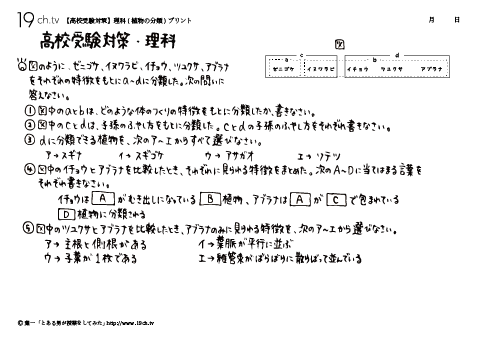 19ch.tv 【高校受験対策】理科(植物の分類)プリント 月 日
高校受験対策・理科
図
c d
a b
ゼニゴケ イヌワラビ イチョウ ツユクサ アブラナ
図のように、ゼニゴケ、イヌワラビ、イチョウ、ツユクサ、アブラナ
をそれぞれの特徴をもとにa~dに分類した。次の問いに
答えなさい。
①図中のaとbは、どのような体のつくりの特徴をもとに分類したか、書きなさい。
②図中のcとdは、子孫のふやし方をもとに分類した。cとdの子孫のふやし方をそれぞれ書きなさい。
③dに分類できる植物を、次のア~エからすべて選びなさい。
ア→スギナ イ→スギゴケ ウ→アサガオ エ→ソテツ
④図中のイチョウとアブラナを比較したとき、それぞれに見られる特徴をまとめた。次のA~Dに当てはまる言葉を
それぞれ書きなさい。
イチョウは A がむき出しになっている B 植物、アブラナは A が C で包まれている
D 植物に分類される
⑤図中のツユクサとアブラナを比較したとき、アブラナのみに見られる特徴を、次のア~エから選びなさい。
ア→主根と側根がある イ→葉脈が平行に並ぶ
ウ→子葉が1枚である エ→維管束がばらばりに散らばって並んでいる
©葉一「とある男が授業をしてみた」http://www.19ch.tv